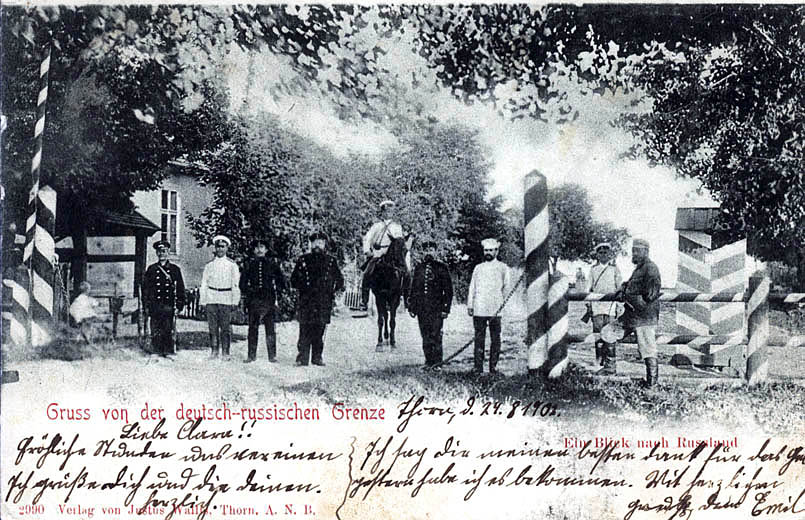 Gruss von der deutsch-russischen Grenze
Thorn, d. 24. 8. 1902.
Ein Blick nach Russland
Liebe Clara!!
Fröhliche Stunden uns vereinen
Ich grüße dich und die deinen.
herzlich
Ich sag Dir meinen besten dank für das
gestern habe ich es bekommen. Mit herzlichen
gruß dein Emil
2990 Verlag von Justus Wallis, Thorn, A. N. B.